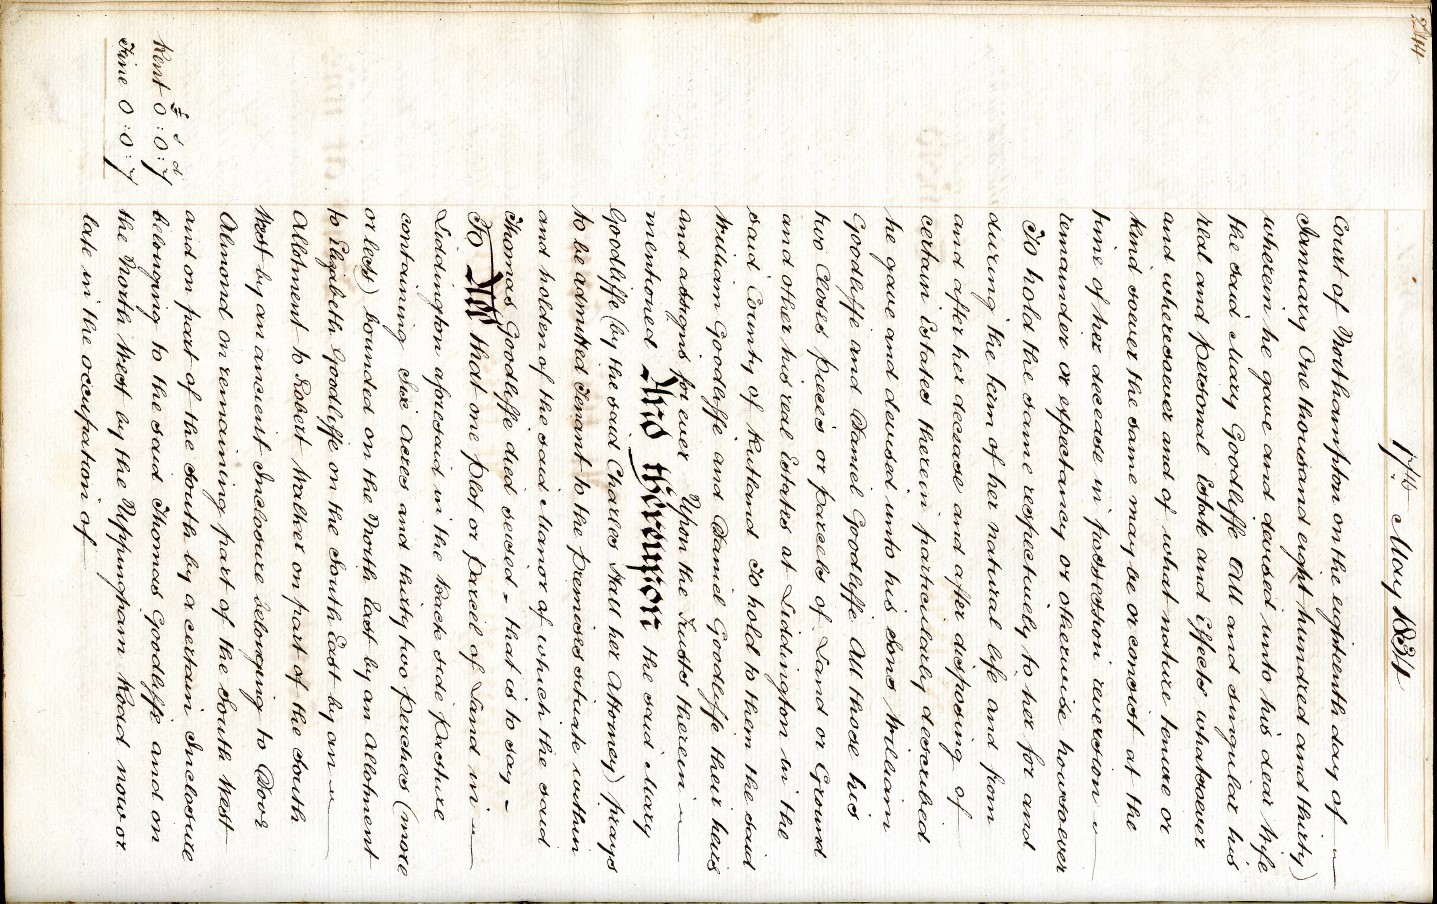 244
17th May 1831
Court of Northampton on the eighteenth day of
January One thousand eight hundred and thirty)
wherein he gave and devised unto his dear Wife
the said Mary Goodliffe All and singular his
real and personal Estate and Effects whatsoever
and wheresoever and of what nature tenure or
kind soever the same may be or consist at the
time of her decease in possession reversion
remainder or expectancy or otherwise howsoever
To hold the same respectively to her for and
during the term of her natural life and from
and after her decease and after disposing of
certain Estates therein particularly described
he gave and devised unto his Sons William
Goodliffe and Daniel Goodliffe All those his
two Closes pieces or parcels of Land or Ground
and other his real Estates at Liddington in the
said County of Rutland To hold to them the said
William Goodliffe and Daniel Goodliffe their heirs
and assigns for ever Upon the Trusts therein
mentioned And thereupon the said Mary
Goodliffe (by the said Charles Hall her Attorney) prays
to be admitted Tenant to the premises situate within
and holden of the said Manor of which the said
Thomas Goodliffe died seised - that is to say -
To All that one plot or parcel of Land in
Liddington aforesaid in the Back side pasture
containing Six Acres and thirty two perches (more
or less) bounded on the North East by an Allotment
to Elizabeth Goodliffe on the South East by an
Allotment to Robert Walker on part of the South
West by an ancient Inclosure belonging to
Almond on remaining part of the South West
and on part of the South by a certain Inclosure
belonging to the said Thomas Goodliffe and on
the North West by the Uppingham Road now or
late in the occupation of
£ s d
Rent 0:0:7
Fine 0:0:7